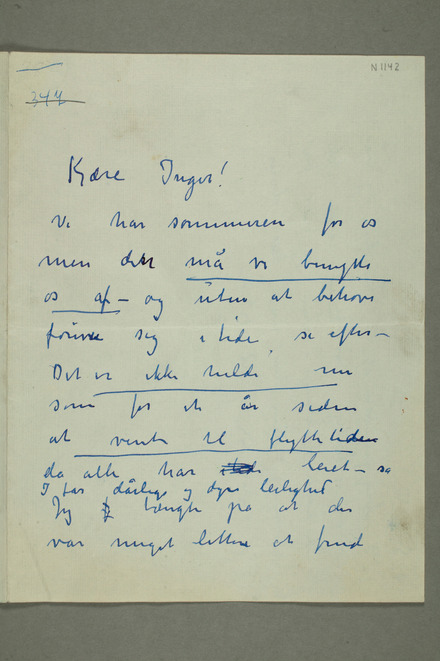 N 1142
344
Kjære Inger!
Vi har sommeren for os
men den må vi benytte
os af – og uten at behøve
seg i tide se efter –
Det er ikke nu
som for et år siden
at vente til flyttetiden
da alle har leiet – sa
I far dårlig og dyr leilighed
Jeg tængte på at der
var meget lettere at find